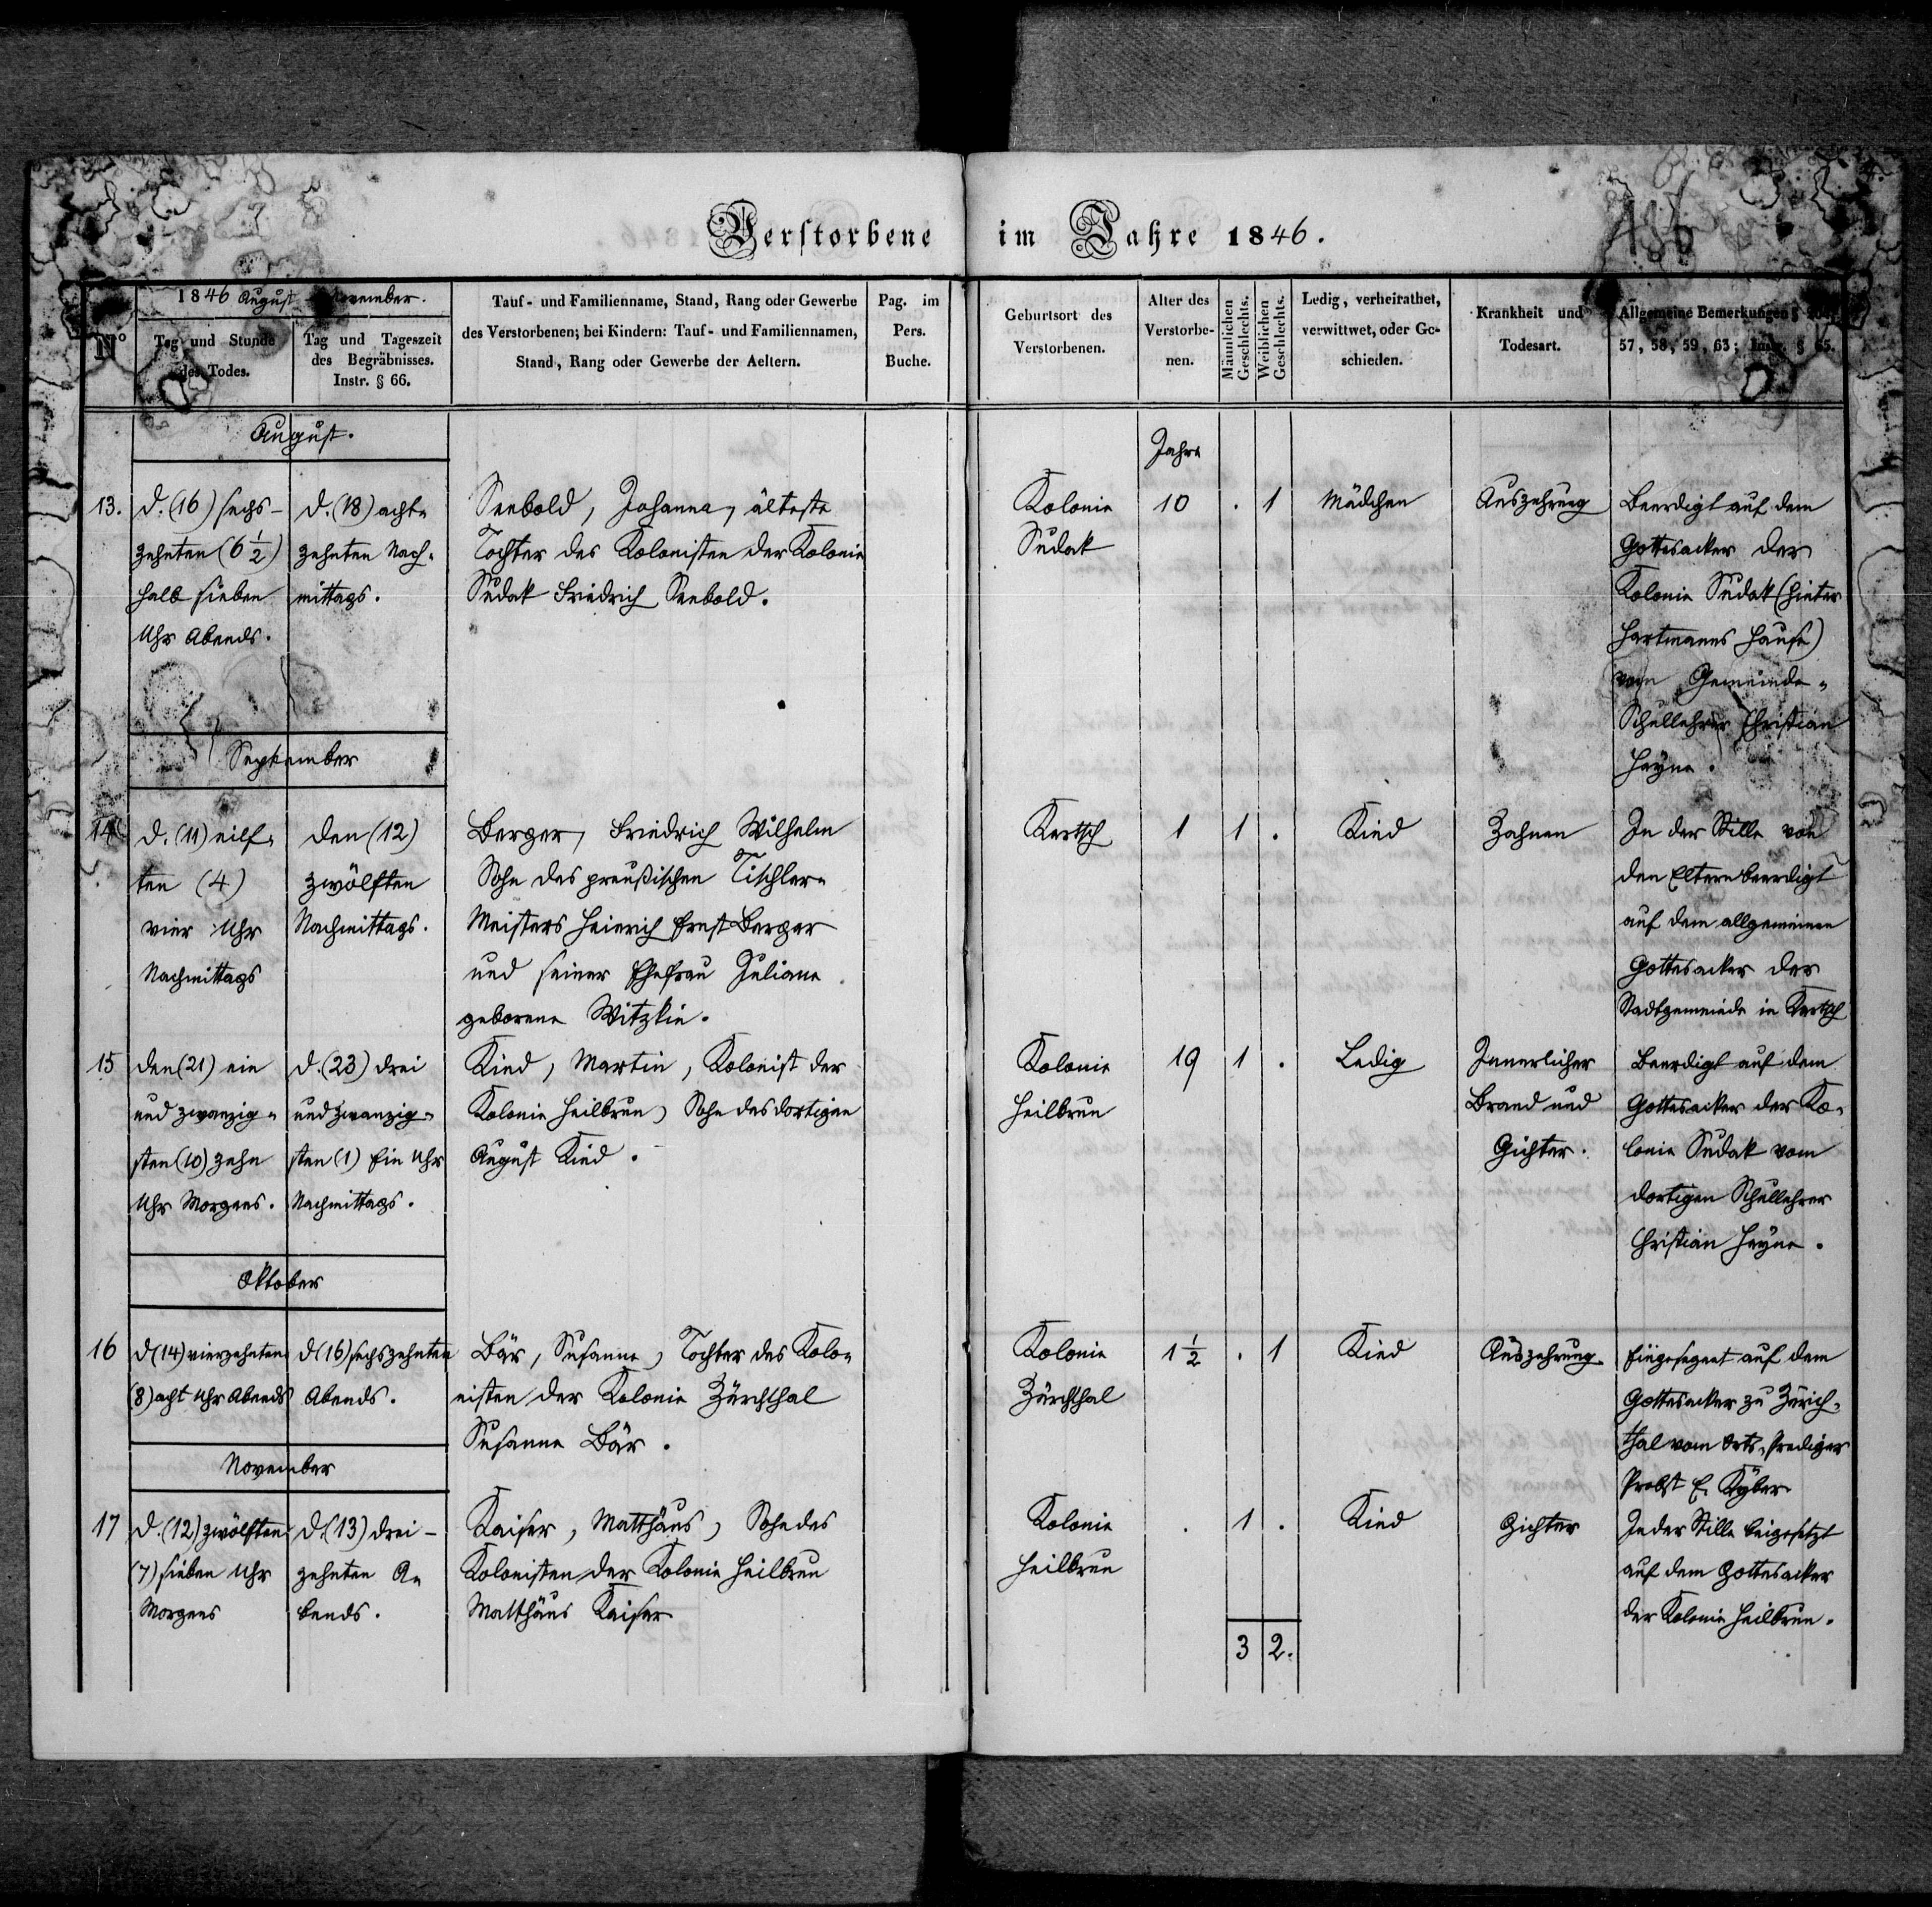 Verstorbene im Jahre 1846.
1846 August - November.
No
Tag und Stunde
des Todes.
Tag und Tageszeit
des Begräbnisses.
Instr. § 66.
Tauf- und Familienname, Stand, Rang oder Gewerbe
des Verstorbenen; bei Kindern: Tauf- und Familiennamen,
Stand, Rang oder Gewerbe der Aeltern.
Pag. im
Pers.
Buche.
Geburtsort des
Verstorbenen.
Alter des
Verstorbe-
nen.
Männlichen
Geschlechts.
Weiblichen
Geschlechts.
Ledig, verheirathet,
verwittwet, oder Ge-
schieden.
Krankheit und
Todesart.
Allgemeine Bemerkungen §
57, 58, 59, 63; Instr. § 65.
August.
Jahre
13.
d. (16) sechs-
zehnten (6 1/2)
halb sieben
Uhr Abends.
d. (18) acht-
zehnten Nach-
mittags.
Seebold, Johanna, älteste
Tochter des Kolonisten der Kolonie
Sudak Friedrich Seebold.
Kolonie
Sudak
10 . 1
Mädchen
Auszehrung
Beerdigt auf dem
Gottesacker der
Kolonie Sudak (hinter
Hartmanns Hause)
vom Gemeinde-
Schullehrer Christian
Heyne.
September
14
d. (11) eilf-
ten (4)
vier Uhr
Nachmittags
den (12)
zwölften
Nachmittags.
Berger, Friedrich Wilhelm
Sohn des preußischen Tischler-
Meisters Heinrich Ernst Berger
und seiner Ehefrau Juliane
geborene Witzkin.
Kertsch
1 1 .
Kind
Zahnen
In der Stille von
den Eltern beerdigt
auf dem allgemeinen
Gottesacker der
Stadtgemeinde in Kertsch
15
den (21) ein
und zwanzig-
sten (10) zehn
Uhr Morgens.
d. (23) drei
und zwanzig-
sten (1) Ein Uhr
Nachmittags.
Kind, Martin, Kolonist der
Kolonie Heilbrun, Sohn des dortigen
August Kind.
Kolonie
Heilbrun
19 1 .
Ledig
Innerlicher
Brand und
Gichter.
Beerdigt auf dem
Gottesacker der Ko-
lonie Sudak vom
dortigen Schullehrer
Christian Heyne.
Oktober
16
d (14) vierzehnten
(8) acht Uhr Abends
d (16) sechszehnten
Abends.
Bär, Susanne, Tochter des Kolo-
nisten der Kolonie Zürchthal
Susanne Bär.
Kolonie
Zürchthal
1 1/2 . 1
Kind
Auszehrung
Eingesegnet auf dem
Gottesacker zu Zürich-
thal vom Orts-Prediger
Probst E. Kyber
November
17
d. (12) zwölften
(7) sieben Uhr
Morgens
d. (13) drei-
zehnten A-
bends.
Kaiser, Matthäus, Sohn des
Kolonisten der Kolonie Heilbrun
Matthäus Kaiser
Kolonie
Heilbrun
. 1 .
Kind
Gichter
In der Stille beigesetzt
auf dem Gottesacker
der Kolonie Heilbrun.
3 2.